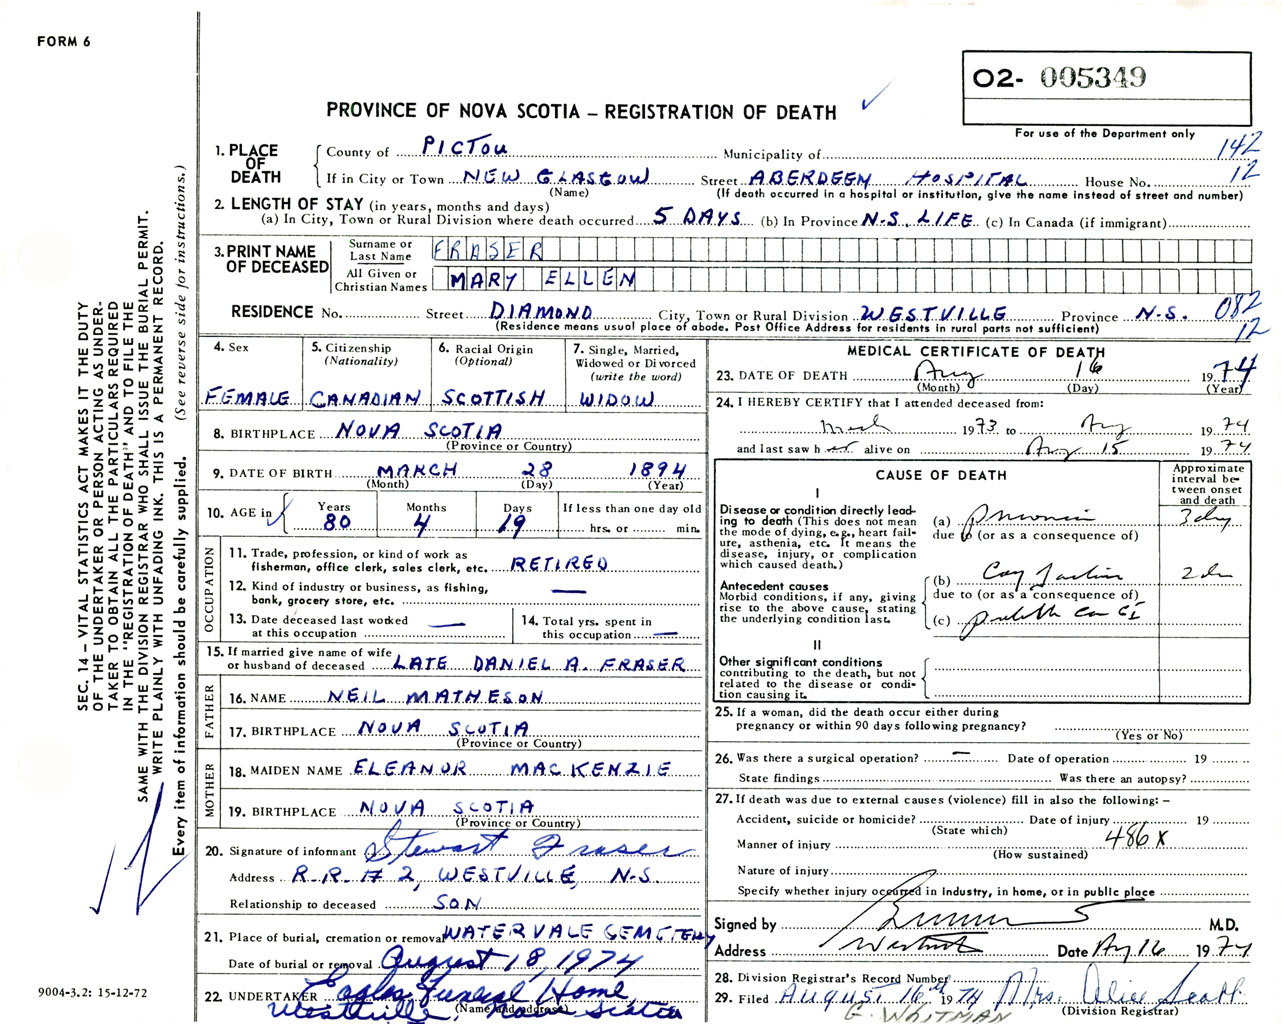 FORM 6
O2- 005349
PROVINCE OF NOVA SCOTIA – REGISTRATION OF DEATH
For use of the Department only
142
12
1. PLACE OF DEATH
County of PICTOU Municipality of
If in City or Town NEW GLASGOW Street ABERDEEN HOSPITAL House No.
(Name) (If death occurred in a hospital or institution, give the name instead of street and number)
2. LENGTH OF STAY (in years, months and days)
(a) In City, Town or Rural Division where death occurred 5 DAYS (b) In Province N.S. LIFE (c) In Canada (if immigrant)
3. PRINT NAME OF DECEASED
Surname or Last Name FRASER
All Given or Christian Names MARY ELLEN
RESIDENCE No. Street DIAMOND City, Town or Rural Division WESTVILLE Province N.S. 082
12
(Residence means usual place of abode. Post Office Address for residents in rural parts not sufficient)
4. Sex
FEMALE
5. Citizenship
(Nationality)
CANADIAN
6. Racial Origin
(Optional)
SCOTTISH
7. Single, Married,
Widowed or Divorced
(write the word)
WIDOW
8. BIRTHPLACE NOVA SCOTIA
(Province or Country)
9. DATE OF BIRTH MARCH 28 1894
(Month) (Day) (Year)
10. AGE in
Years Months Days If less than one day old
80 4 19 hrs. or min.
OCCUPATION
11. Trade, profession, or kind of work as
fisherman, office clerk, sales clerk, etc. RETIRED
12. Kind of industry or business, as fishing,
bank, grocery store, etc. —
13. Date deceased last worked
at this occupation —
14. Total yrs. spent in
this occupation —
15. If married give name of wife
or husband of deceased LATE DANIEL A. FRASER
FATHER
16. NAME NEIL MATHESON
17. BIRTHPLACE NOVA SCOTIA
(Province or Country)
MOTHER
18. MAIDEN NAME ELEANOR MACKENZIE
19. BIRTHPLACE NOVA SCOTIA
(Province or Country)
20. Signature of informant Stewart Fraser
Address R.R. # 2, WESTVILLE, N.S.
Relationship to deceased SON
21. Place of burial, cremation or removal WATERVALE CEMETERY
Date of burial or removal August 18, 1974
22. UNDERTAKER Eagles Funeral Home,
(Name and address)
Westville, Nova Scotia
MEDICAL CERTIFICATE OF DEATH
23. DATE OF DEATH Aug 16 1974
(Month) (Day) (Year)
24. I HEREBY CERTIFY that I attended deceased from:
1973 to Aug 1974
and last saw h alive on Aug 15 1974
CAUSE OF DEATH
Approximate
interval be-
tween onset
and death
I
Disease or condition directly lead-
ing to death (This does not mean
the mode of dying, e.g., heart fail-
ure, asthenia, etc. It means the
disease, injury, or complication
which caused death.)
(a) 3 day
due to (or as a consequence of)
Antecedent causes
Morbid conditions, if any, giving
rise to the above cause, stating
the underlying condition last.
(b)
due to (or as a consequence of)
(c)
II
Other significant conditions
contributing to the death, but not
related to the disease or condi-
tion causing it.
25. If a woman, did the death occur either during
pregnancy or within 90 days following pregnancy?
(Yes or No)
26. Was there a surgical operation? — Date of operation 19
State findings Was there an autopsy?
27. If death was due to external causes (violence) fill in also the following: –
Accident, suicide or homicide? Date of injury 19
(State which)
486X
Manner of injury
(How sustained)
Nature of injury
Specify whether injury occurred in industry, in home, or in public place
Signed by M.D.
Address Date Aug 16 1974
28. Division Registrar's Record Number
29. Filed August 16th 1974 Mrs. Alice Scott
(Division Registrar)
E. WHITMAN
SEC. 14 – VITAL STATISTICS ACT MAKES IT THE DUTY
OF THE UNDERTAKER OR PERSON ACTING AS UNDER-
TAKER TO OBTAIN ALL THE PARTICULARS REQUIRED
IN THE "REGISTRATION OF DEATH" AND TO FILE THE
SAME WITH THE DIVISION REGISTRAR WHO SHALL ISSUE THE BURIAL PERMIT.
WRITE PLAINLY WITH UNFADING INK. THIS IS A PERMANENT RECORD.
Every item of information should be carefully supplied. (See reverse side for instructions.)
9004-3.2: 15-12-72